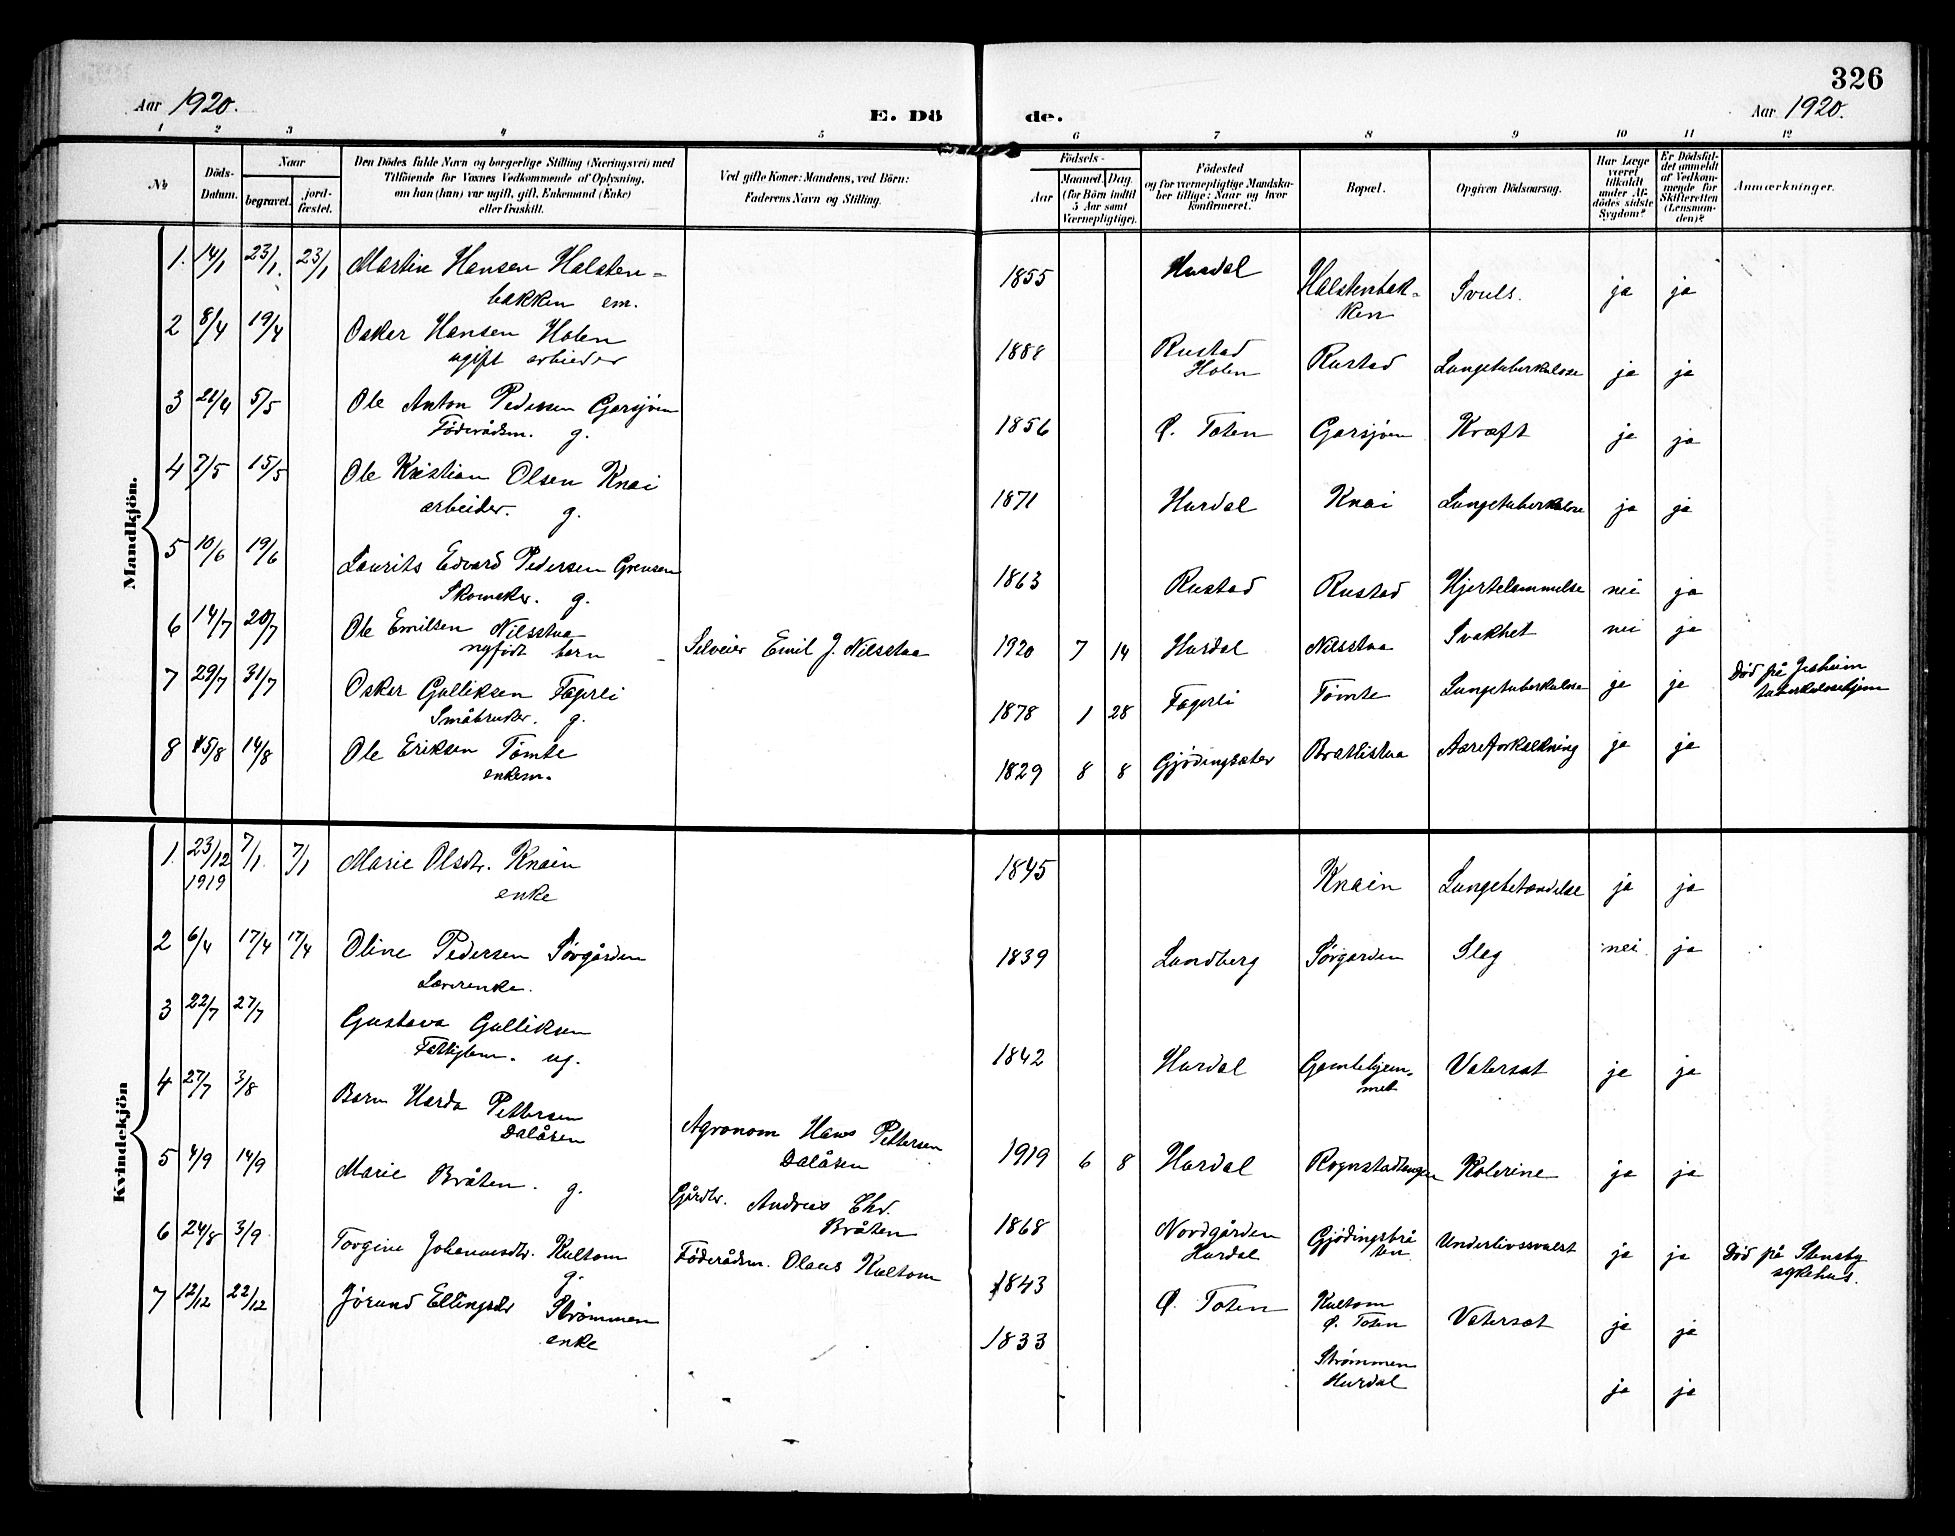 326
Aar 1920.
E. Dö
de.
Aar 1920.
1 2 3 4 5 6 7 8 9 10 11 12
No
Döds-
Datum.
Naar
begravet.
jord-
fæstet.
Den Dödes fulde Navn og borgerlige Stilling (Næringsvei) med
Tilföiende for Voxnes Vedkommende af Oplysning,
om han (hun) var ugift, gift, Enkemand (Enke)
eller fraskilt.
Ved gifte Koner: Mandens, ved Börn:
Faderens Navn og Stilling.
Födsels-
Aar
Maaned. Dag.
(for Börn indtil
5 Aar samt
Værnepligtige).
Födested
og for værnepligtige Mandska-
ber tillige: Naar og hvor
konfirmeret.
Bopæl.
Opgiven Dödsaarsag.
Har Læge
været
tilkaldt
under Af-
dödes sidste
Sygdom?
Er Dödsfal-
det anmeldt
af Vedkom-
mende for
Skifteretten
(Lensman-
den)?
Anmærkninger.
Mandkjön.
1. 14/1 23/1. 23/1 Martin Hansen Halsten-
bakken em.
1855 Hurdal Halstenbak-
ken
Svuls. ja ja
2 8/4 19/4 Oskar Hansen Holen
ugift arbieder
1888 Rustad
Holen
Rustad Lungetuberkulose ja ja
3 21/4 5/5 Ole Anton Pedersen Garsjøen
Føderådsm. g.
1856 Ø. Toten Garsjøen Kræft ja ja
4 7/5 15/5 Ole Kristian Olsen Knai
arbeider. g.
1871 Hurdal Knai Lungetuberkulose ja ja
5 10/6 19/6 Laurits Edvard Pedersen Grensen
Skomaker. g.
1863 Rustad Rustad Hjertelammelse nei ja
6 14/7 20/7 Ole Emilsen Nilsstua
nyfødt barn
Selveier Emil J. Nilsstua
1920 7 14 Hurdal Nilsstua Svakhet nei ja
7 29/7 31/7 Oskar Gulliksen Fagerli
Småbruker. g.
1878 1 28 Fagerli Tømte Lungetuberkulose ja ja Død på Jesheim
tuberkulosehjem
8 5/8 14/8 Ole Eriksen Tømte
enkem.
1829 8 8 Gjødingsæter Bratlistua Aareforkalkning ja ja
Kvindekjön
1. 23/12
1919
7/1. 7/1 Marie Olsdtr. Knain
enke
1845 Knain Lungebetændelse ja ja
2 6/4 17/4 17/4 Oline Pedersen Sørgården
Lærerenke.
1839 Lundberg Sørgarden Slag nei ja
3 22/7 27/7 Gustava Gulliksen
Fattiglem. ug.
1842 Hurdal Gamlehjem-
met
Vatersot ja ja
4 27/7 3/8 Barn Harda Pettersen
Dalåsen
Agronom Hans Pettersen
Dalåsen
1919 6 8 Hurdal Rognstadtangen Kolerine ja ja
5 4/9 14/9 Marie Bråten. g.
Gårdbr. Andreas Chr.
Bråten
1868 Nordgården
Hurdal
Gjødingsbrå
ten
Underlivssvulst ja ja Død på Stensby
sykehus.
6 24/8 3/9. Torgine Johannesdtr. Kultom
g.
Føderådsm. Olaus Kultom
1843 Ø. Toten Kultom
Ø. Toten
Vatersot ja ja
7 12/12 22/12 Jørund Ellingsdtr Strømmen
enke
1833 Strømmen
Hurdal
ja ja